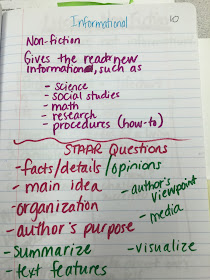 Informational
10
Non-fiction
Gives the reader new
information, such as
- science
- social studies
- math
- research
- procedures (how-to)
STAAR Questions
- facts/details/opinions
- main idea
- author's viewpoint
- organization
- media
- author's purpose
- Summarize
- visualize
- text features